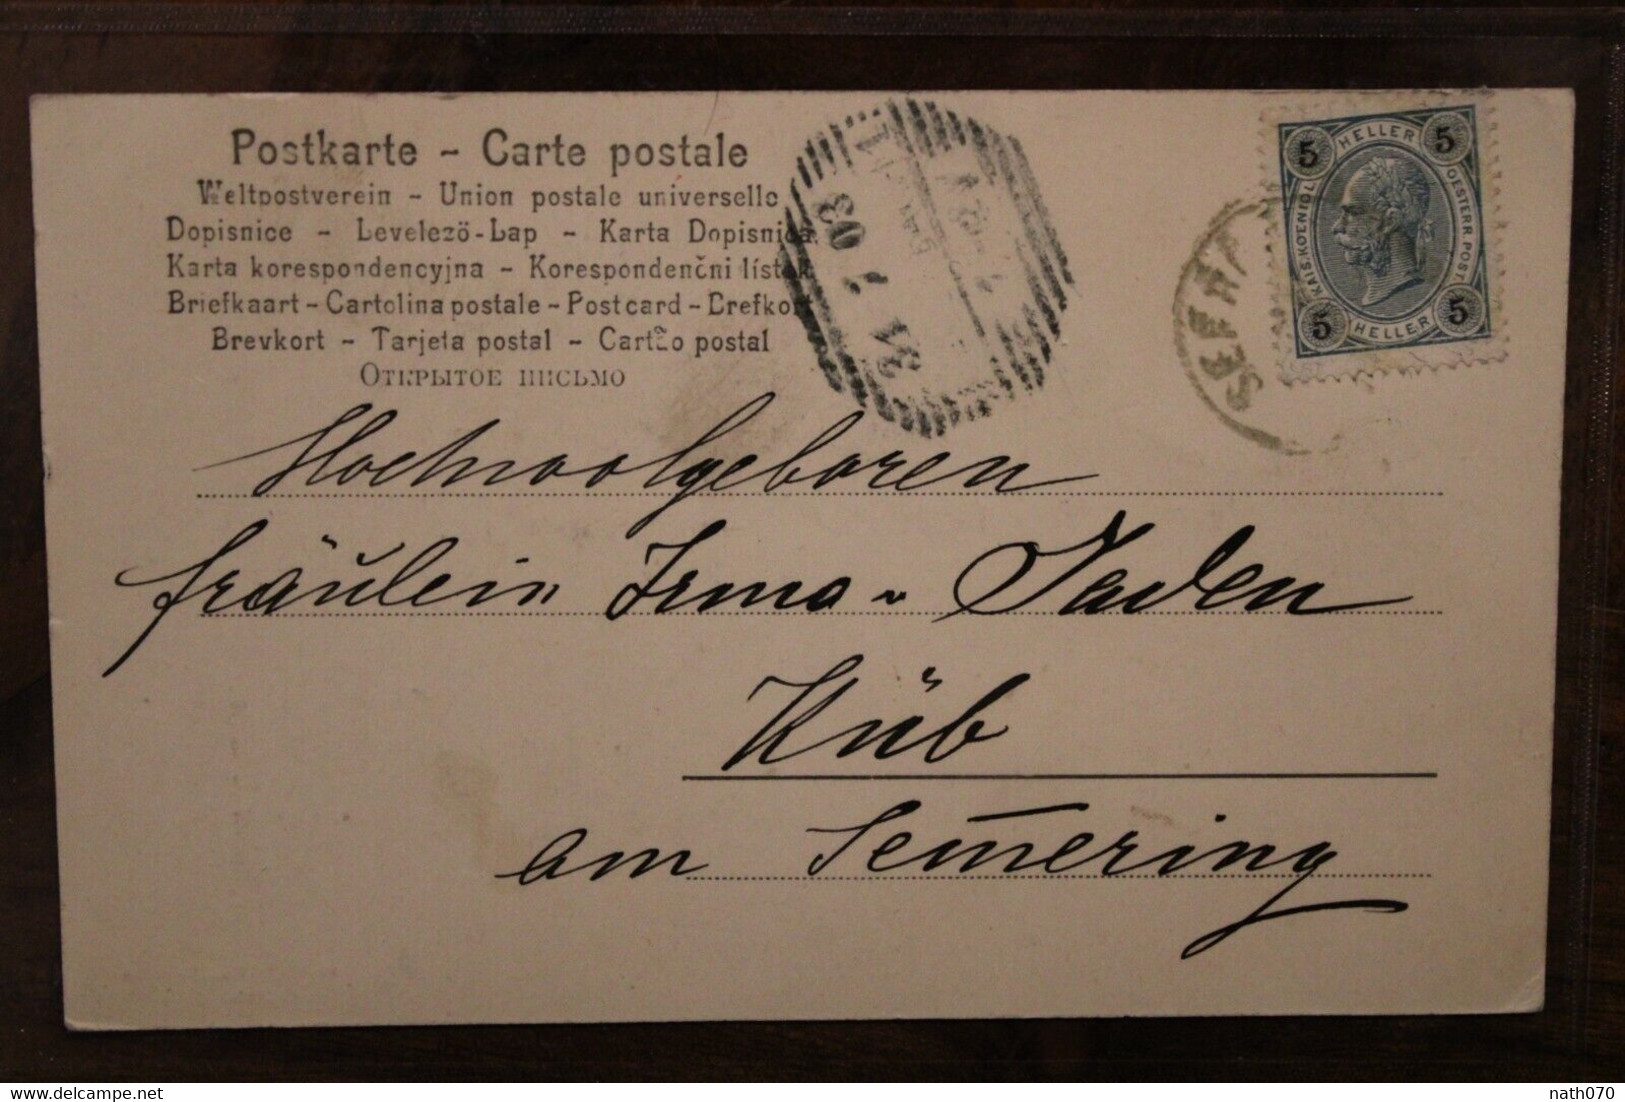 Postkarte - Carte postale
Weltpostverein - Union postale universelle
Dopisnice - Levelező-Lap - Karta Dopisnica
Karta korespondencyjna - Korespondenční lístek
Briefkaart - Cartolina postale - Postcard - Brefkort
Brevkort - Tarjeta postal - Cartão postal
Открытое письмо
5 HELLER 5
KAIS. KOENIGL. OESTERR. POST
5 HELLER 5
31 7 03
Hochwolgeboren
Fräulein Irma v Jaden
Küb
am Sem̅ering
nath070